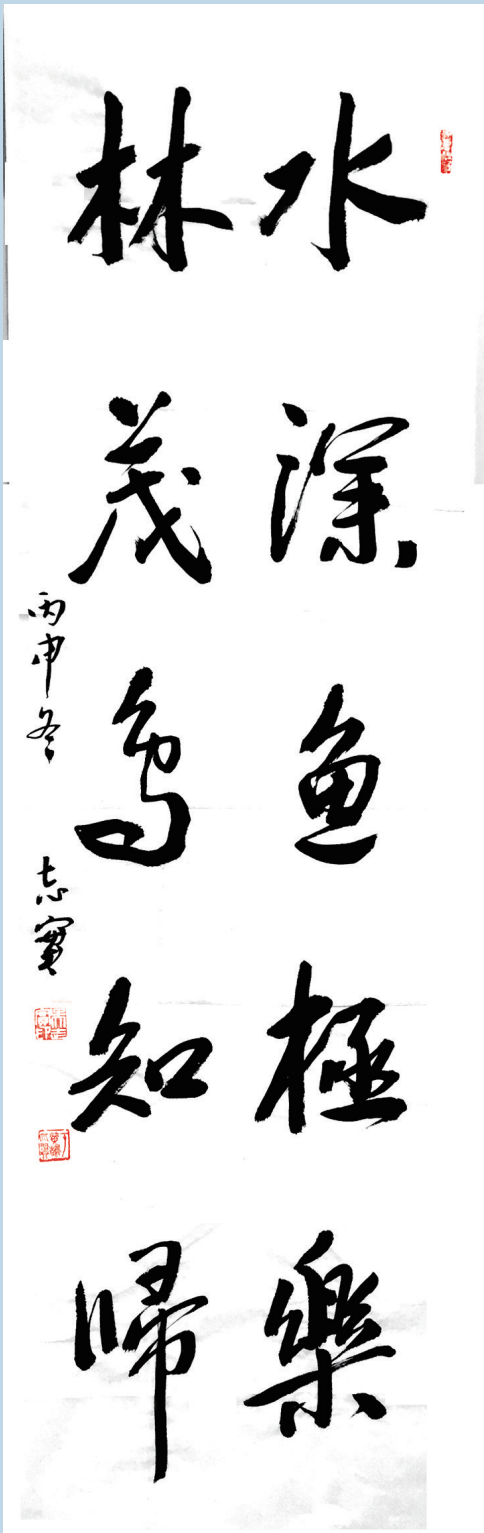 水深鱼極樂
林茂鸟知歸
丙申冬 志寶